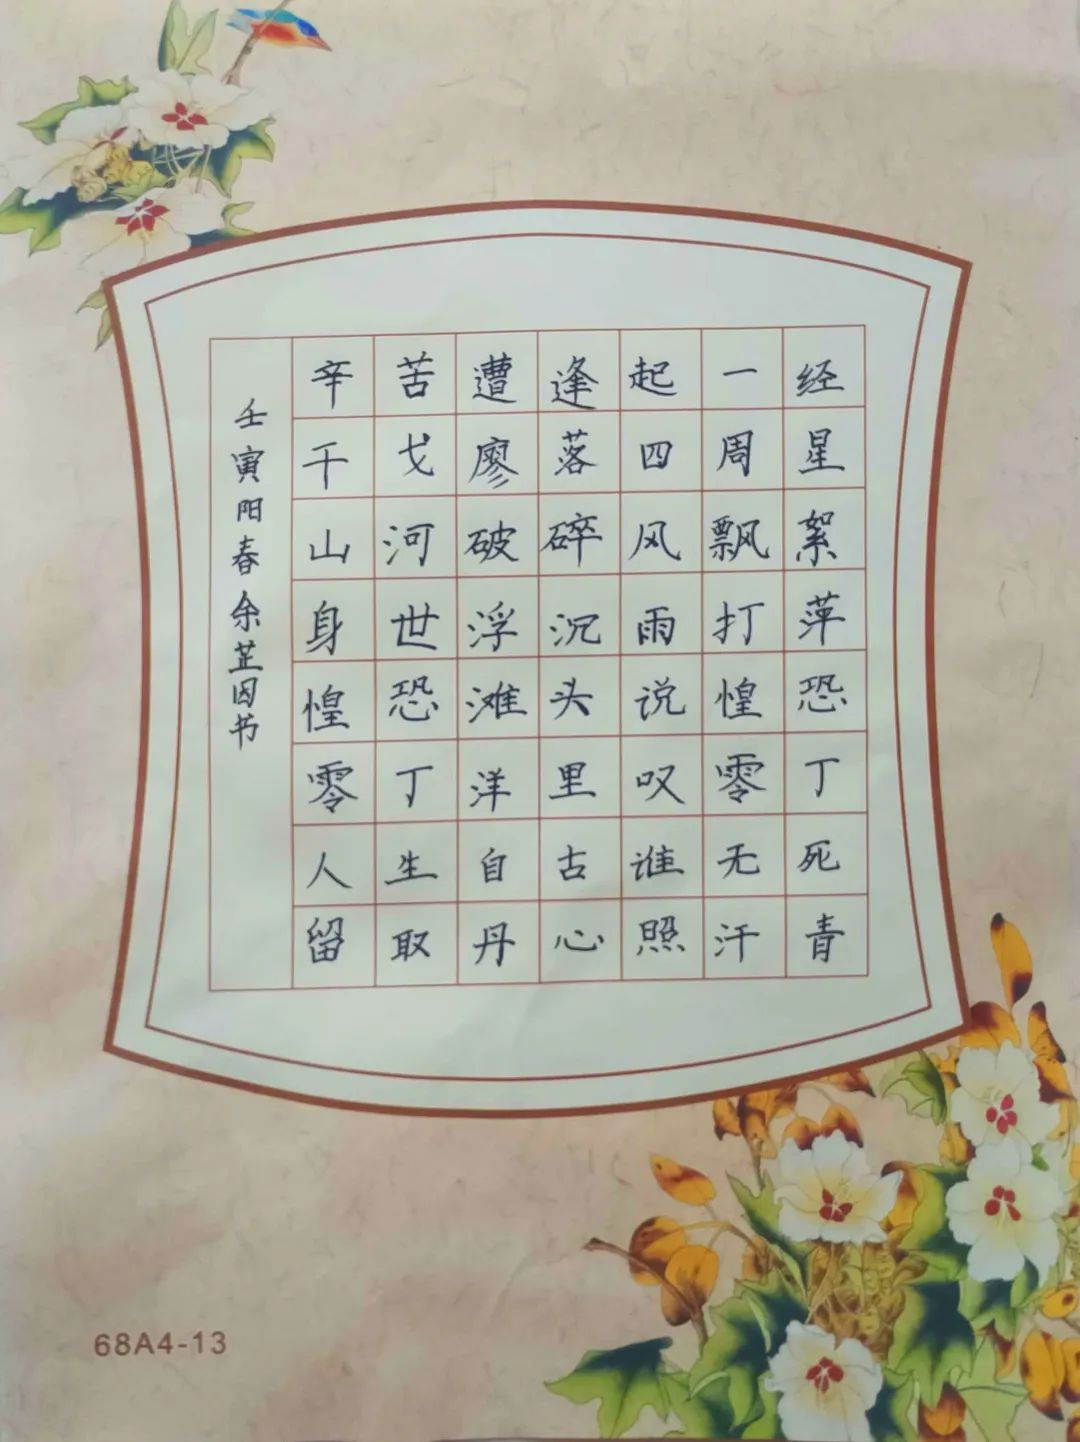 辛苦遭逢起一经
干戈廖落四周星
山河破碎风飘絮
身世浮沉雨打萍
惶恐滩头说惶恐
零丁洋里叹零丁
人生自古谁无死
留取丹心照汗青
壬寅阳春余芷因书
68A4-13